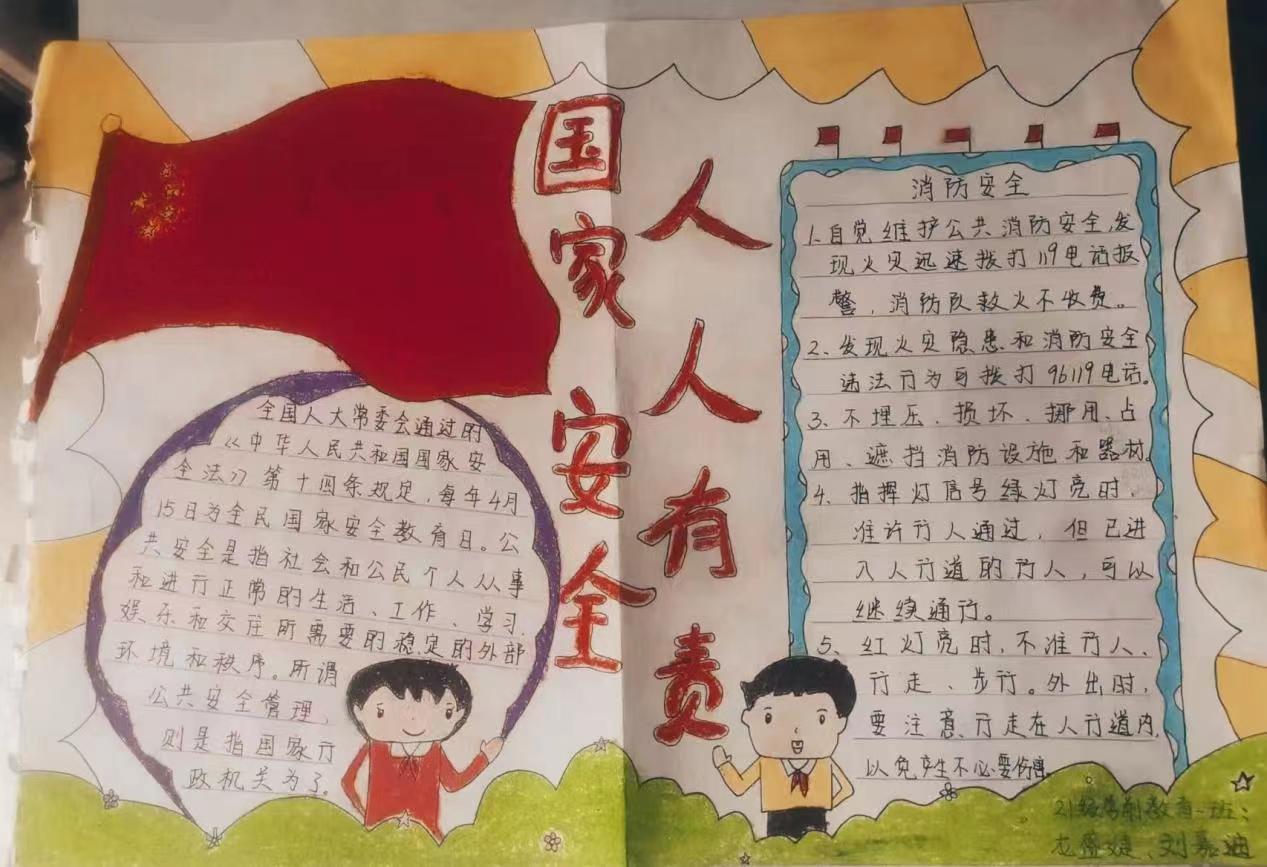 国家安全
人人有责
全国人大常委会通过的
《中华人民共和国国家安
全法》第十四条规定，每年4月
15日为全民国家安全教育日。公
共安全是指社会和公民个人从事
和进行正常的生活、工作、学习、
娱乐和交往所需要的稳定的外部
环境和秩序。所谓
公共安全管理，
则是指国家行
政机关为了。
消防安全
1.自觉维护公共消防安全,发
现火灾迅速拨打119电话报
警，消防队救火不收费。
2、发现火灾隐患和消防安全
违法行为可拨打96119电话。
3、不埋压、损坏、挪用、占
用、遮挡消防设施和器材。
4、指挥灯信号绿灯亮时，
准许行人通过，但已进
入人行道的行人，可以
继续通行。
5、红灯亮时，不准行人、
行走、步行。外出时，
要注意行走在人行道内，
以免产生不必要伤害
21级学前教育一班：
刘